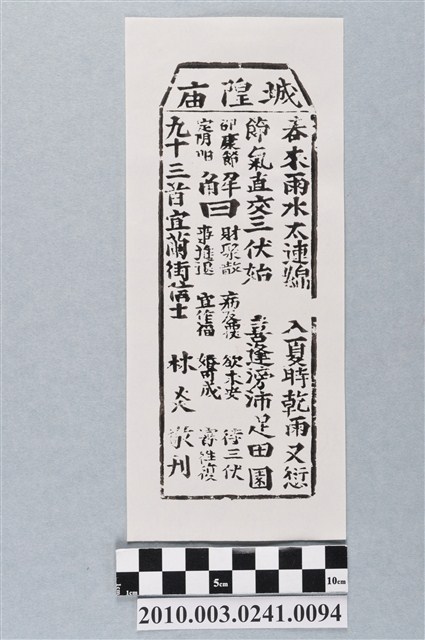 城隍庙
春來雨水太連綿 入夏時乾雨又愆
節氣直交三伏始 喜逢滂沛足田園
解曰
財聚散 病反覆 欲求安 待三伏
事進退 宜作福 婚可成
九十三首宜蘭街信士 林炎敬刊
1cm 5cm 10cm
2010.003.0241.0094